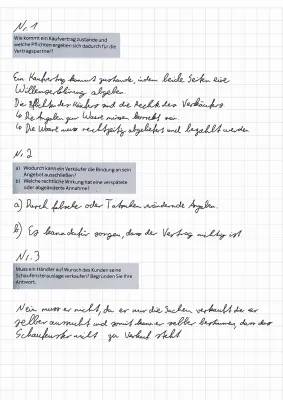 Nr. 1
Wie kommt ein Kaufvertrag zustande und
welche Pflichten ergeben sich dadurch für die
Vertragspartner?
Ein Kaufvertrag kommt zustande, indem beide Seiten eine
Willenserklärung abgeben.
Die Pflichte des Käufers sind die Rechte des Verkäufers
↳ Die Angaben zur Ware müssen korrekt sein
↳ Die Ware muss rechtzeitig abgeliefert und bezahlt werden
Nr. 2
a) Wodurch kann ein Verkäufer die Bindung an sein
Angebot ausschließen?
b) Welche rechtliche Wirkung hat eine verspätete
oder abgeänderte Annahme?
a) Durch falsche oder Angaben.
b) Es kann dafür sorgen, dass der Vertrag nichtig ist
Nr. 3
Muss ein Händler auf Wunsch des Kunden seine
Schaufensterauslage verkaufen? Begründen Sie Ihre
Antwort.
Nein muss er nicht, da er nur die Sachen verkauft die er
selber aussucht und somit kann er selber bestimmen, dass das
Schaufenster nicht zu Verkauf steht